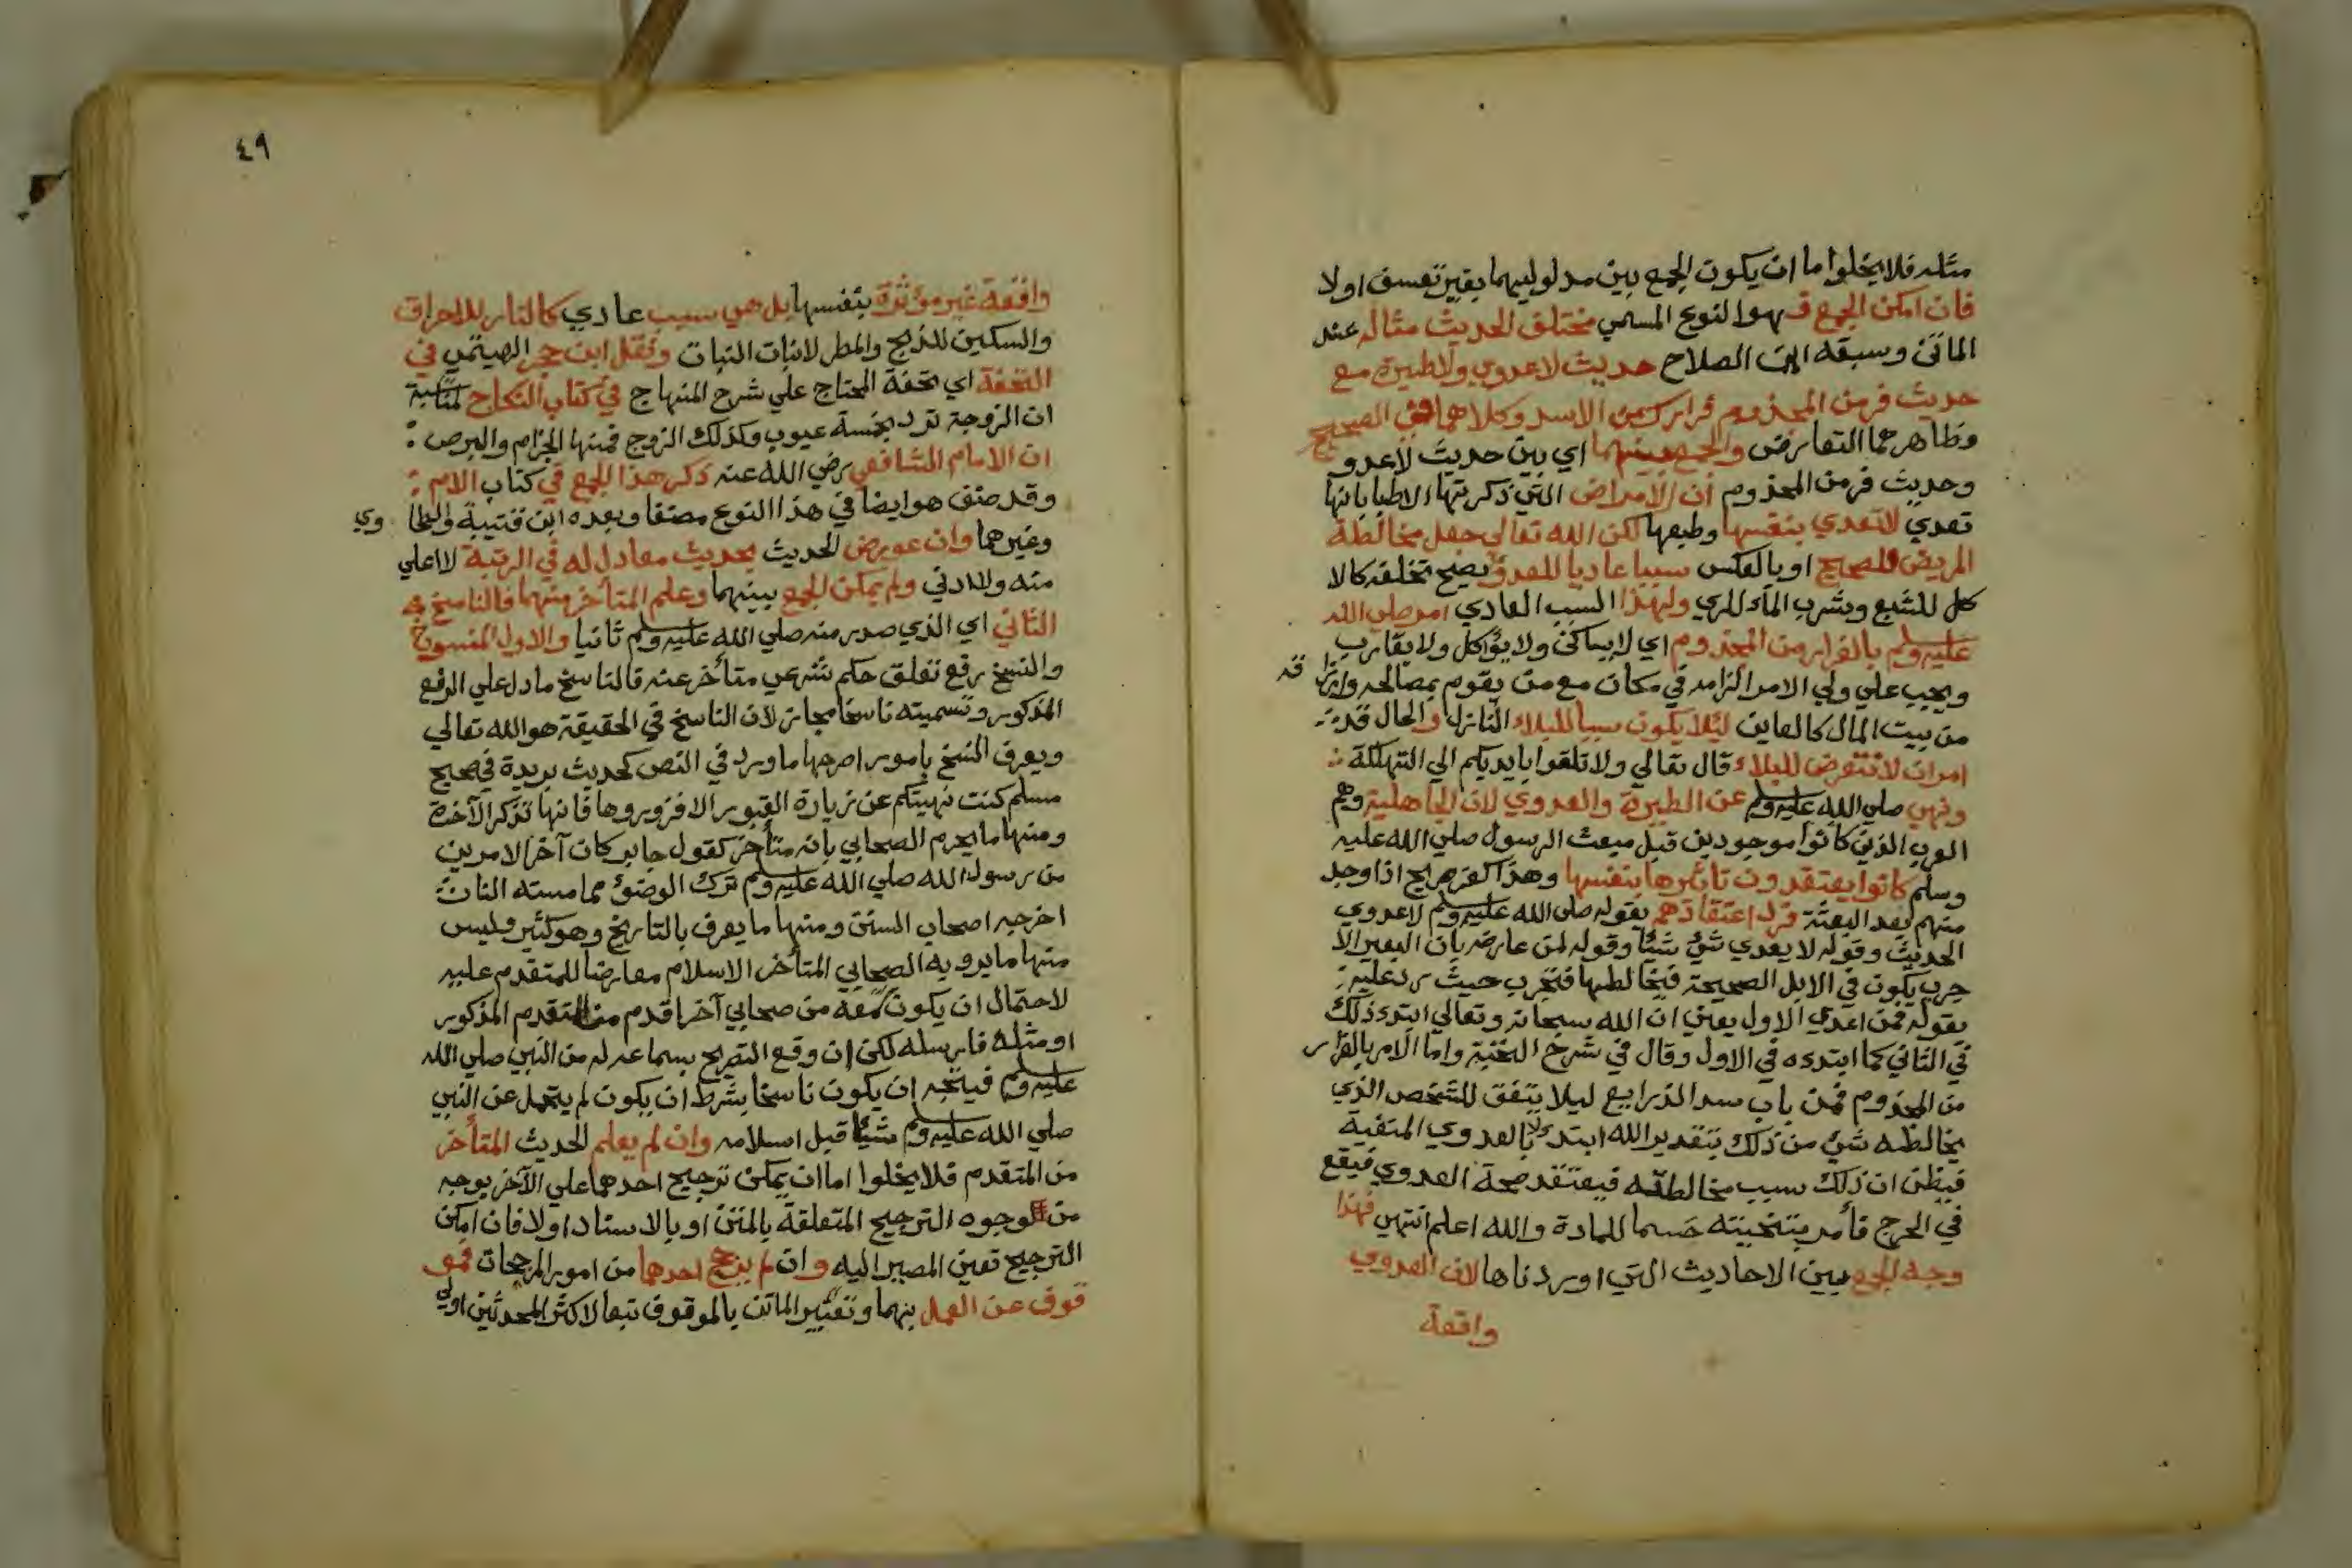 مثله فلا يخلوا اما ان يكون الجمع بين مدلوليهما بغير تعسف اولا
فان امكن الجمع فهو النوع المسمي مختلف الحديث مثاله عند
الماتن وسبقه ابن الصلاح حديث لاعدوي ولاطيرة مع
حديث فر من المجذوم فرارك من الاسد وكلاهما في الصحيح
وظاهرهما التعارض والجمع بينهما اي بين حديث لاعدوي
وحديث فر من المجذوم ان الامراض التي ذكرتها الاطبا بانها
تعدي لاتعدي بنفسها وطبعها لكن الله تعالي جعل مخالطة
المريض للصحيح او بالعكس سببا عاديا للعدوي يصح تخلفه كالا
كل للشبع وبشرب الماء للري ولهذا السبب العادي امر صلي الله
عليه وسلم بالفرار من المجذوم اي لا يساكن ولا يؤاكل ولا يقارب
ويجب علي ولي الامر الزامه في مكان مع من يقوم بمصالحه وارزاقه
من بيت المال كالعاين ليلا يكون سببا للبلاء النازل والحال قد
امر ان لا نتعرض للبلاء قال تعالي ولا تلقوا بايديكم الي التهلكة
ونهي صلي الله عليه وسلم عن الطيرة والعدوي لان الجاهلية وهم
العرب الذين كانوا موجودين قبل مبعث الرسول صلي الله عليه
وسلم كانوا يعتقدون تاثيرها بنفسها وهذا كفر صريح اذا وجد
منهم بعد البعثة فرد اعتقادهم بقوله صلي الله عليه وسلم لاعدوي
الحديث وقوله لا يعدي شئ شيئا وقوله لمن عارضه بان البعير الا
جرب يكون في الابل الصحيحة فيخالطها فتجرب حيث رد عليه
بقوله فمن اعدي الاول يعني ان الله سبحانه وتعالي ابتدء ذلك
في الثاني كما ابتدءه في الاول وقال في شرح النخبة واما الامر بالفرار
من المجذوم فمن باب سد الذرايع ليلا يتفق للشخص الذي
يخالطه شئ من ذلك بتقدير الله ابتدء لا بالعدوي المنفية
فيظن ان ذلك سبب مخالطته فيعتقد صحة العدوي فيقع
في الحرج فأمر بتجنبه حسما للمادة والله اعلم انتهي فهذا
وجه الجمع بين الاحاديث التي اوردناها لان العدوي
واقعة
٤٩
واقعة غير مؤثرة بنفسها بل هي سبب عادي كالنار للاحراق
والسكين للذبح والمطر لانبات النبات ونقل ابن حجر الهيتمي في
التحفة اي تحفة المحتاج علي شرح المنهاج في كتاب النكاح لمناسبة
ان الزوجة ترد بخمسة عيوب وكذلك الزوج فمنها الجزام والبرص
ان الامام الشافعي رضي الله عنه ذكر هذا الجمع في كتاب الام
وقد صنف هو ايضا في هذا النوع مصنفا وبعده ابن قتيبة والطحاوي
وغيرهما وان عورض الحديث بحديث معادل له في الرتبة لااعلي
منه ولا ادني ولم يمكن الجمع بينهما وعلم المتأخر منهما فالناسخ هو
الثاني اي الذي صدر منه صلي الله عليه وسلم ثانيا والاول المنسوخ
والنسخ رفع تعلق حكم شرعي متأخر عنه فالناسخ ما دل علي الرفع
المذكور وتسميته ناسخا مجاز لان الناسخ في الحقيقة هو الله تعالي
ويعرف النسخ بامور اصرحها ما ورد في النص كحديث بريدة في صحيح
مسلم كنت نهيتكم عن زيارة القبور الا فزوروها فانها تذكر الآخرة
ومنها ما يجزم الصحابي بانه متأخر كقول جابر كان آخر الامرين
من رسول الله صلي الله عليه وسلم ترك الوضوء مما مسته النار
اخرجه اصحاب السنن ومنها ما يعرف بالتاريخ وهو كثير وليس
منها ما يرويه الصحابي المتأخر الاسلام معارضا للمتقدم عليه
لاحتمال ان يكون سمعه من صحابي آخر اقدم من المتقدم المذكور
او مثله فارسله لكن ان وقع التصريح بسماعه له من النبي صلي الله
عليه وسلم فيتجه ان يكون ناسخا بشرط ان يكون لم يتحمل عن النبي
صلي الله عليه وسلم شيئا قبل اسلامه وان لم يعلم الحديث المتأخر
من المتقدم فلا يخلوا اما ان يمكن ترجيح احدهما علي الآخر بوجه
من وجوه الترجيح المتعلقة بالمتن او بالاسناد اولا فان امكن
الترجيح تعين المصير اليه وان لم يرجح احدهما من امور المرجحات فمو
قوف عن العمل بهما وتعبير الماتن بالموقوف تبعا لاكثر المحدثين اولي